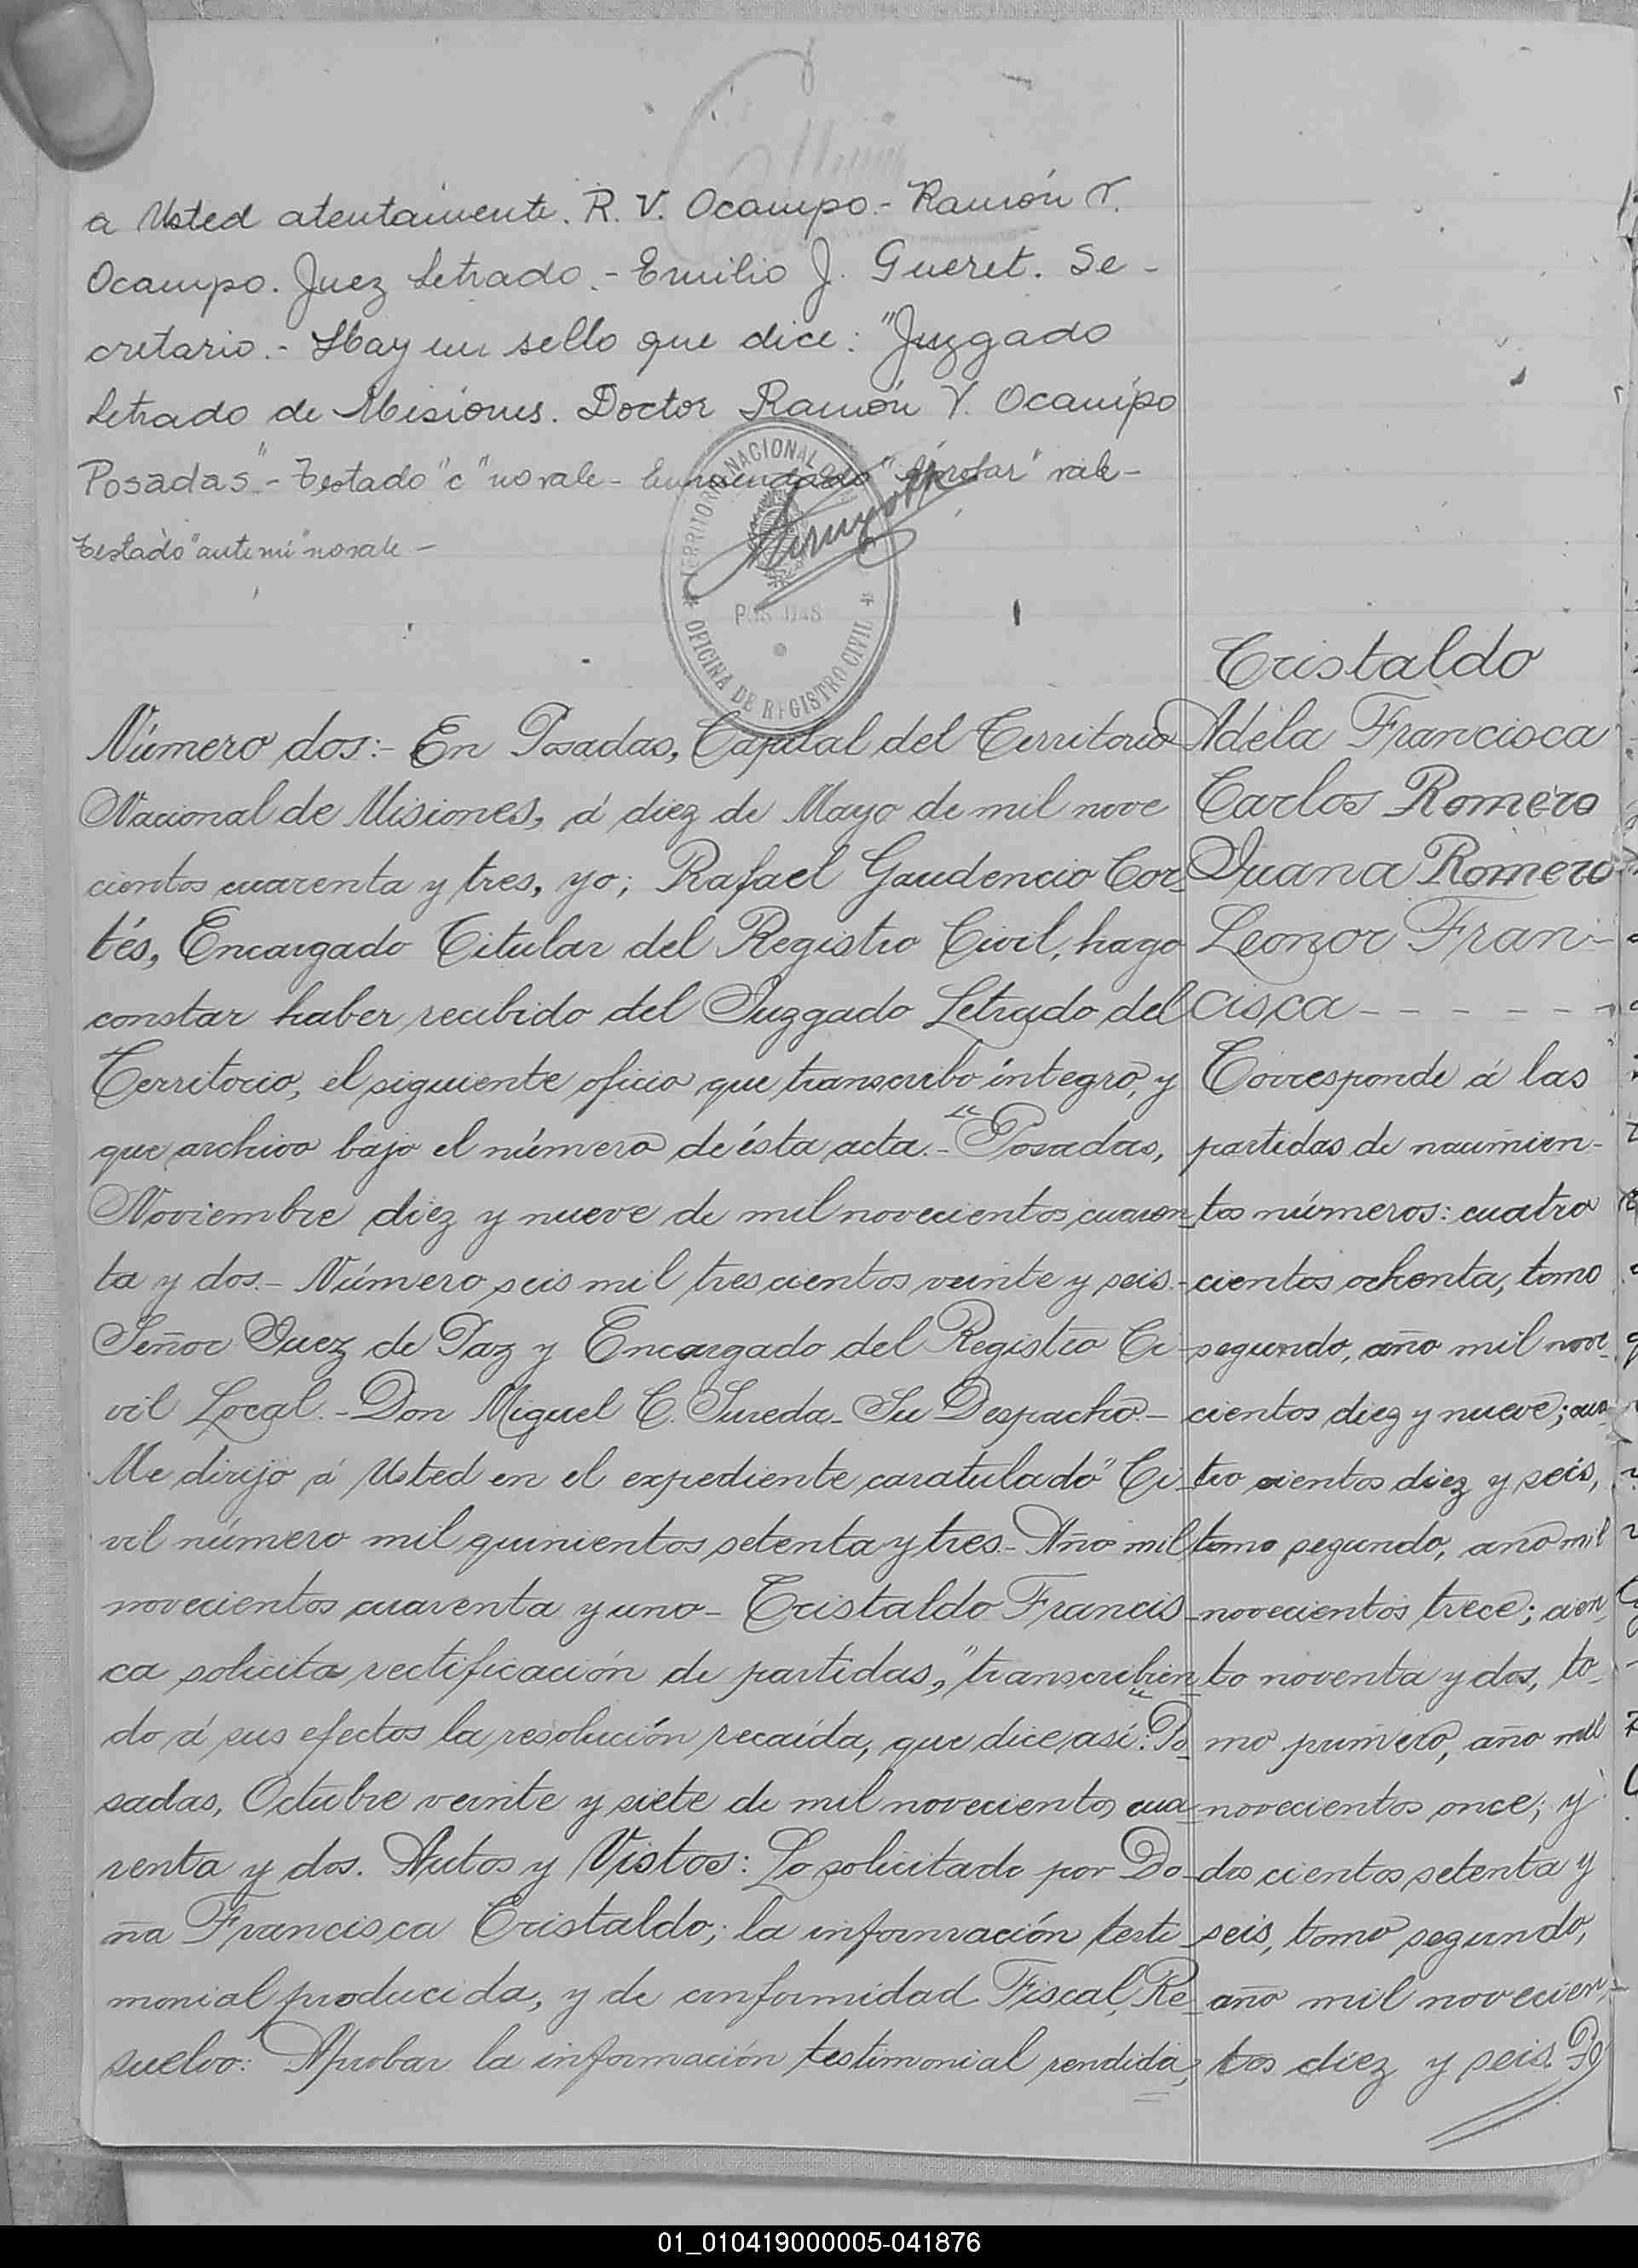 a Usted atentamente. R. V. Ocampo.- Ramón V.
Ocampo. Juez Letrado.- Emilio J. Gueret. Se-
cretario.- Hay un sello que dice: "Juzgado
Letrado de Misiones. Doctor Ramón V. Ocampo
Posadas"- Testado "c" no vale- Enmendado "aprobar" vale-
Testado "ante mi" no vale-
TERRITORIO NACIONAL
POSADAS
OFICINA DE REGISTRO CIVIL
Número dos:- En Posadas, Capital del Territorio
Nacional de Misiones, á diez de Mayo de mil nove
cientos cuarenta y tres, yo; Rafael Gaudencio Cor-
tés, Encargado Titular del Registro Civil, hago
constar haber recibido del Juzgado Letrado del
Territorio, el siguiente oficio que transcribo íntegro, y
que archivo bajo el número de ésta acta.- "Posadas,
Noviembre diez y nueve de mil novecientos cuaren-
ta y dos.- Número seis mil trescientos veinte y seis.-
Señor Juez de Paz y Encargado del Registro Ci-
vil Local.- Don Miguel C. Sureda- Su Despacho-
Me dirijo á Usted en el expediente caratulado "Ci-
vil número mil quinientos setenta y tres- Año mil
novecientos cuarenta y uno- Cristaldo Francis-
ca solicita rectificación de partidas," transcribien-
do á sus efectos la resolución recaída, que dice así: "Po-
sadas, Octubre veinte y siete de mil novecientos cua-
renta y dos. Autos y Vistos: Lo solicitado por Do-
ña Francisca Cristaldo; la información testi-
monial producida, y de conformidad Fiscal, Re-
suelvo: Aprobar la información testimonial rendida,
Cristaldo
Adela Francisca
Carlos Romero
Juana Romero
Leonor Fran-
cisca - - - - - -
Corresponde á las
partidas de nacimien-
tos números: cuatro
cientos ochenta, tomo
segundo, año mil nove-
cientos diez y nueve; cua-
tro cientos diez y seis,
tomo segundo, año mil
novecientos trece; cien-
to noventa y dos, to-
mo primero, año mil
novecientos once; y
dos cientos setenta y
seis, tomo segundo,
año mil novecien-
tos diez y seis.
01_010419000005-041876